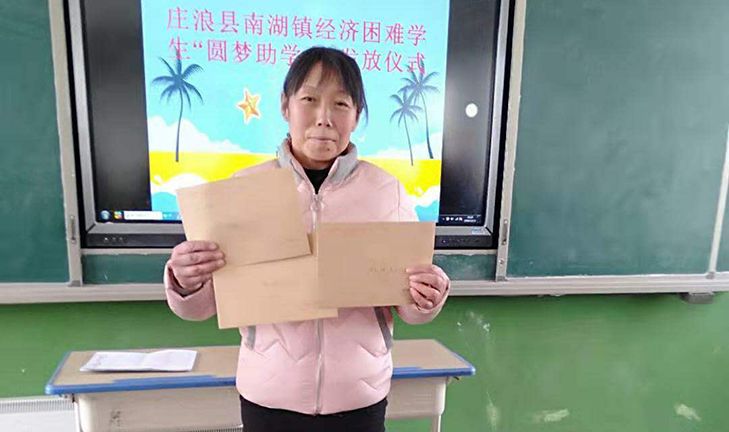 庄浪县南湖镇经济困难学
生“圆梦助学 发放仪式